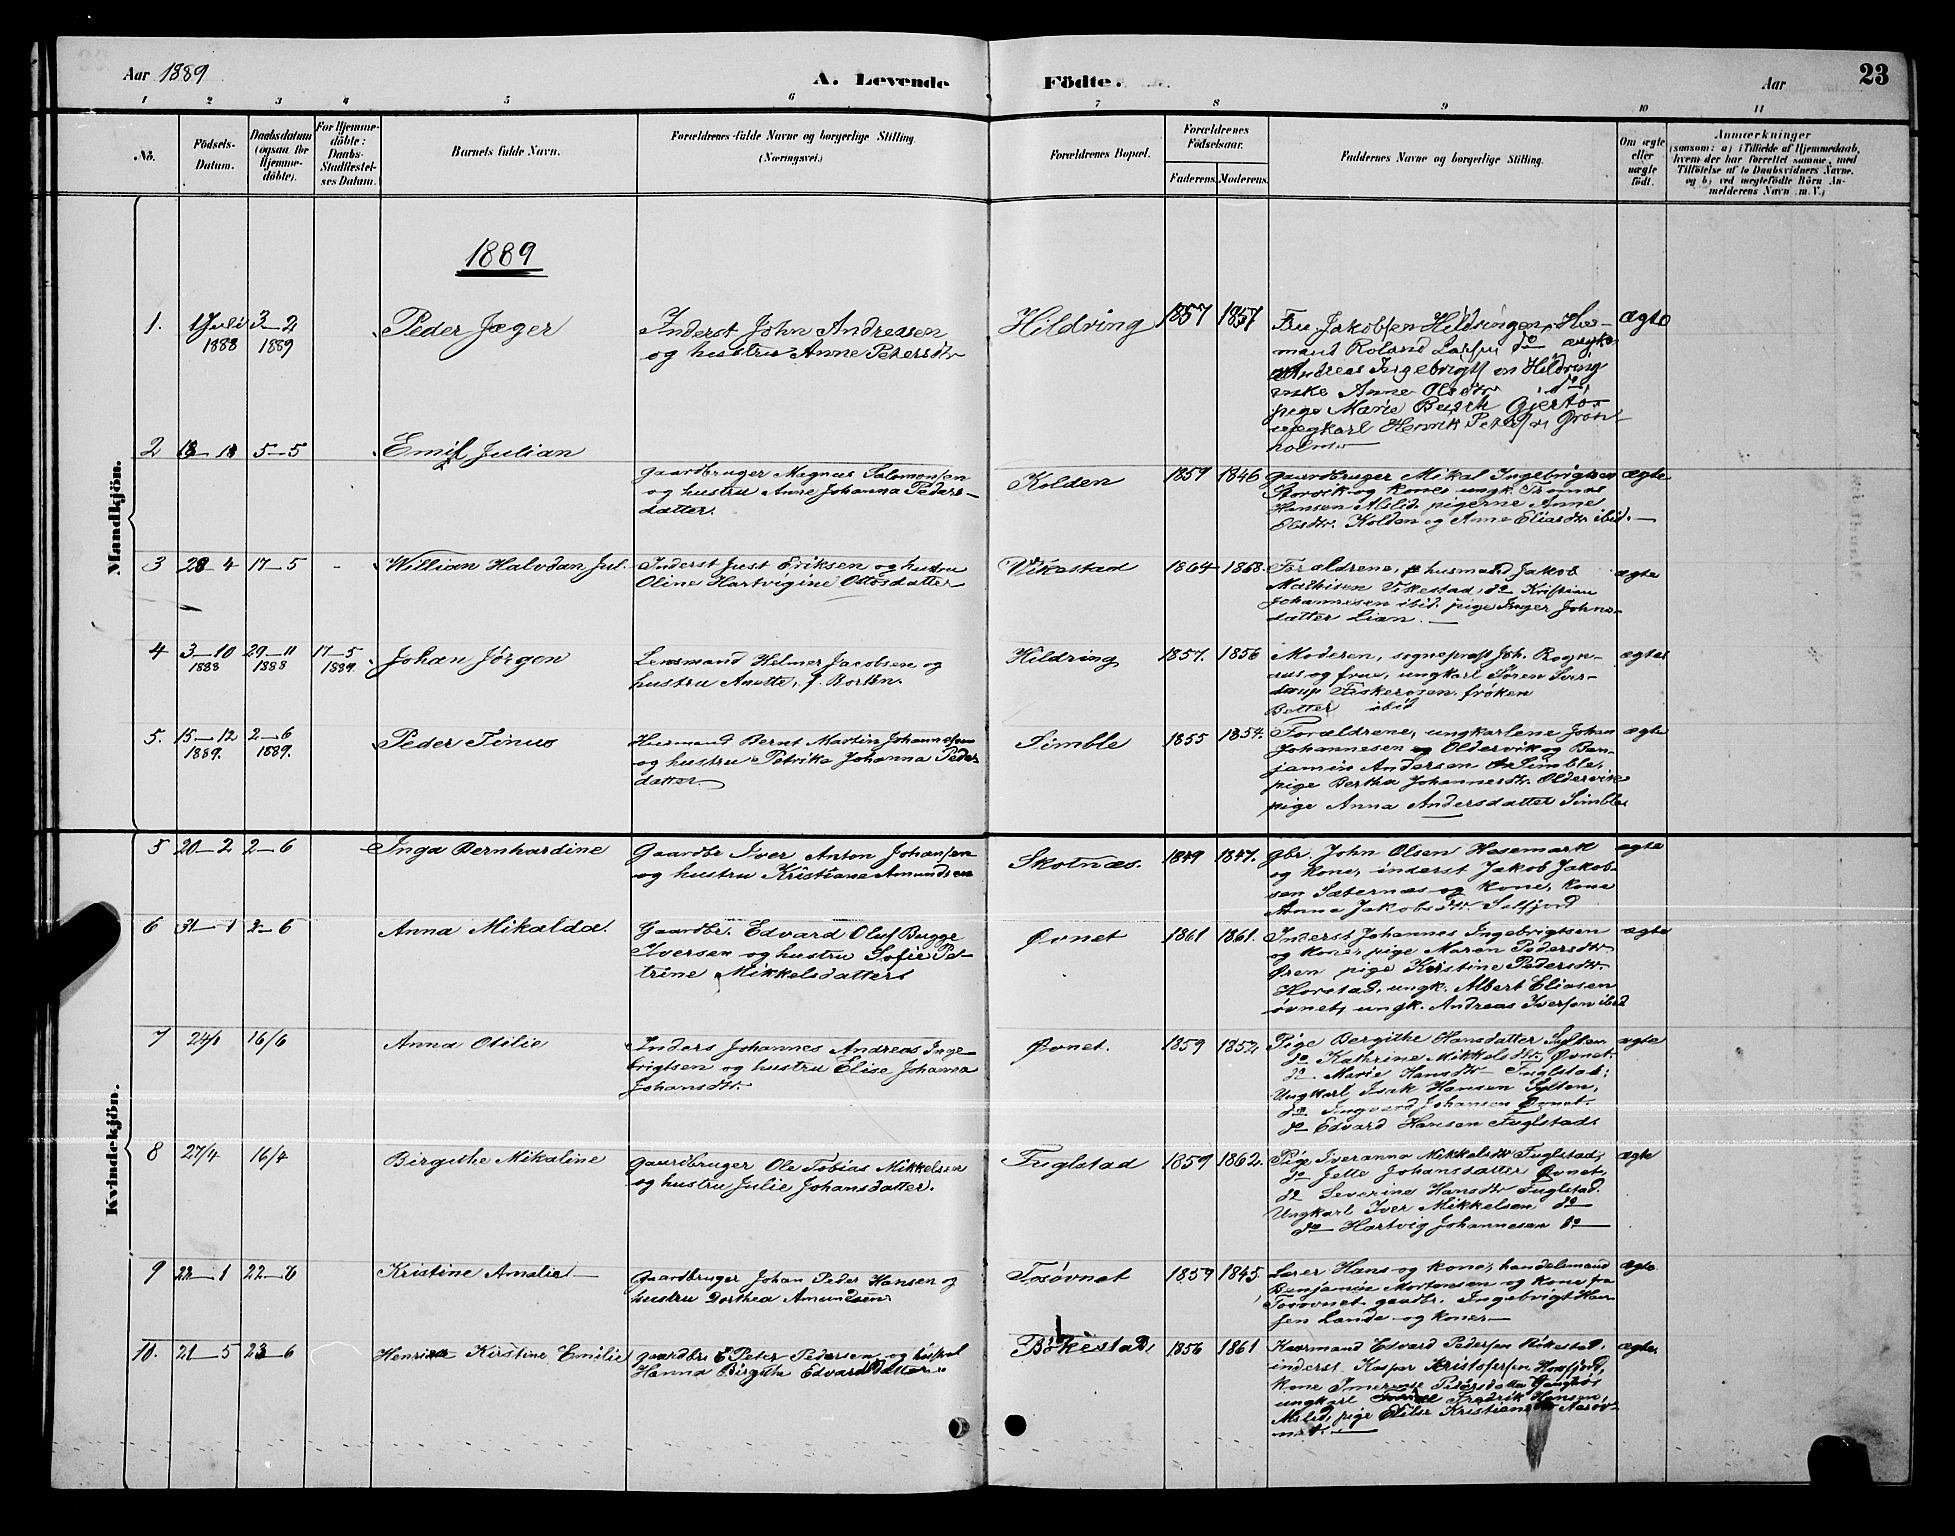 Aar 1889
A. Levende
Födte.
Aar
23
1 2 3 4 5 6 7 8 9 10 11
No.
Födsels-
Datum.
Daabsdatum
(ogsaa for
Hjemme-
döbte).
For Hjemme-
döbte:
Daabs-
Stadfæstel-
ses Datum.
Barnets fulde Navn.
Forældrenes fulde Navne og borgerlige Stilling.
(Næringsvei.)
Forældrenes Bopæl.
Forældrenes
Födselsaar.
Faderens. Moderens.
Faddernes Navne og borgerlige Stilling.
Om ægte
eller
uægte
födt.
Anmærkninger
(saasom: a) i Tilfælde af Hjemmedaab,
hvem der har forrettet samme, med
Tilföielse af to Daabsvidners Navne.
og b) ved uægtefödte Börn An-
melderens Navn m. V.)
Mandkjön.
1889
1.
1 Juli
1888
3—2
1889
Peder Jæger
Inderst John Andreasen
og hustru Anne Petersdtr
Hildring
1857
1857
Fru Jakobsen Hildringen, Hus-
mand Roland Larsen do
Andreas Ingebrigtsen Hildring
enke Anne Olsdtr do
pige Marie Busch
ungkarl Henrik Petersen Grøn-
holmen
ægte
2
5—5
Emil Julian
gaardbruger Magnus Salomonsen
og hustru Anne Johanna Peders-
datter.
Kolden
1859
1846
gaardbruger Mikal Ingebrigtsen
Storvik og kone, ungk. Thomas
Hansen Alslid, pigerne Anne
Olsdtr. Kolden og Anne Eliasdtr ibid.
ægte
3
28—4
17—5
-
William Halvdan Jul.
Inderst Just Eriksen og hustru
Oline Hartvigine Ottosdatter
Vikestad
1864
1868.
Forældrene, husmand Jakob
Mathisen Vikestad, do Kristian
Johannesen ibid. pige Inger Johns-
datter Lian.
ægte
4
3—10
1888
29—11
1888
17—5
1889.
Johan Jørgen
Lensmand Helmer Jacobsen og
hustru Anette, f. Borthn.
Hildring
1857.
1856
Moderen, sogneprest Joh. Rogn-
og frue, ungkarl Søren
Fiskerosen, frøken
ibid
ægte
5.
15—12
1889.
2—6
1889.
Peder Tinus
Husmand Bernt Martin Johannesen
og hustru Petrika Johanna Peders
datter.
Simble
1855
1854.
Forældrene, ungkarlene Johan
Johannesen Oldervik og Ben-
jamin Andersen Simble,
pige Bertha Johannesdtr. Oldervik
pige Anna Andersdatter Simble
ægte
Kvindekjön.
5
20—2
2—6
Inga Bernhardine
Gaardbr Iver Anton Johansen
og hustru Kristiane Amundsen
Skotnæs.
1849
1847.
gbr. John Olsen Hasemark
og kone, inderst Jakob Jakob-
sen Sæternæs og kone, kone
Anna Jakobsdtr. Selfjord
ægte
6
31—1
2—6
Anna Mikalda.
Gaardbr. Edvard Oluf Bugge
Iversen og hustru Sofie Pe-
trine Mikkelsdatters
Øvnet
1861
1861.
Inderst Johannes Ingebrigtsen
og kone, pige Maren Pedersdtr
Øren pige Kristine Pedersdtr.
Horstad, ungk. Albert Eliasen
øvnet, ungk. Andreas Iversen ibid
ægte
7
24/1
16/6
Anna Otilie
Inders Johannes Andreas Inge-
brigtsen og hustru Elise Johanna
Johansdtr.
Øvnet.
1859
1852.
Pige Bergithe Hansdatter Sylten.
do Kathrine Mikkelsdtr, Øvnet.
do Marie Hansdtr Fuglstad;
Ungkarl Isak Hansen Sylten,
do Ingvard Johansen Øvnet.
do Edvard Hansen Fuglstad.
ægte
8
27/4
16/4
Birgithe Mikaline
gaardbruger Ole Tobias Mikkelsen
og hustru Julie Johansdatter.
Fuglstad
1859
1862.
Pige Iveranna Mikkelsdtr Fuglstad,
do Jette Johansdatter Øvnet,
do Severine Hansdtr Fuglstad.
Ungkarl Iver Mikkelsen do
do Hartvig Johannesen do
ægte
9
22—1
22—6
Kristine Amalie
Gaardbruger Johan Peder Hansen og
hustru Dorthea Amundsen
Tosøvnet
1859
1845.
Lærer Hans og kone, handelsmand
Benjamin Mortensen og kone fra
Tosøvnet gaardbr. Ingebrigt Han-
sen Lande og kone
ægte
10.
21—5
23—6
Henrikke Kirstine Emilie
gaardbr. E Peter Pedersen og
Hanna Birgithe Edvardsdatter.
Bökestad,
1856
1861
Kaarmand Edvard Pedersen Bökestad,
inderst. Kaspar Kristofersen
kone Pedersdatter
ungkarl Fredrik Hansen,
pige Elise
ægte.